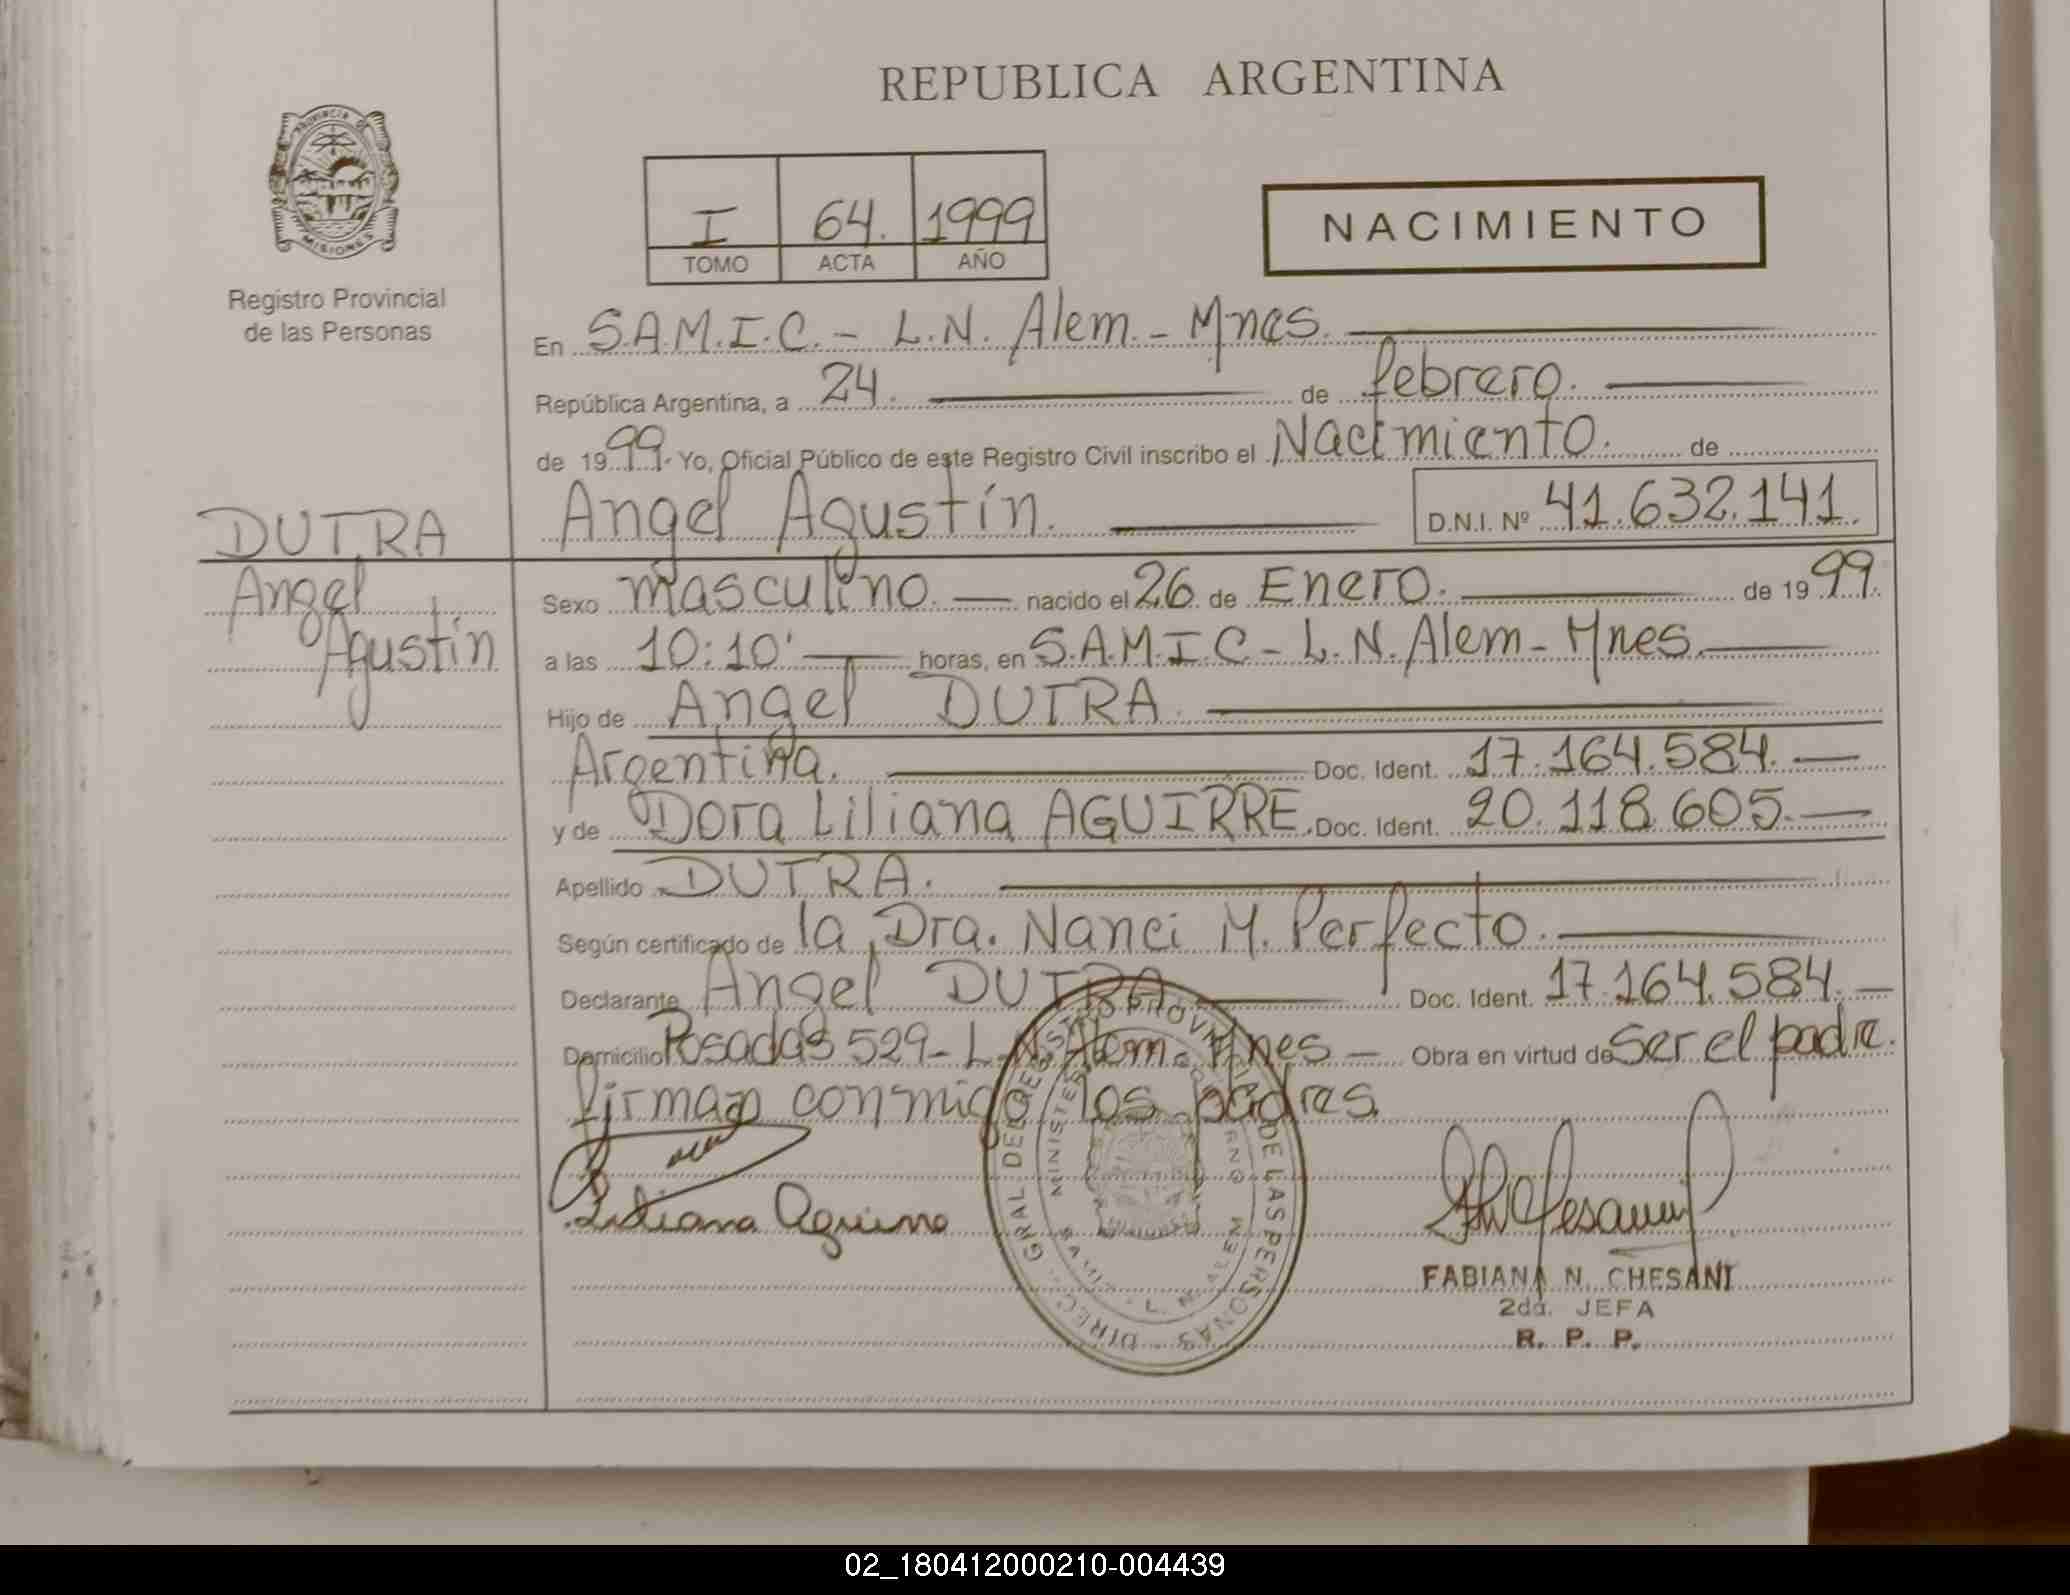 REPUBLICA ARGENTINA
PROVINCIA DE
MISIONES
Registro Provincial
de las Personas
I 64. 1999
TOMO ACTA AÑO
NACIMIENTO
En S.A.M.I.C. - L.N. Alem. - Mnes.
República Argentina, a 24. de febrero.
de 1999. Yo, Oficial Público de este Registro Civil inscribo el Nacimiento. de
DUTRA Angel Agustín. D.N.I. Nº 41.632.141.
Angel Sexo masculino. — nacido el 26 de Enero. de 1999.
Agustín a las 10:10' — horas, en S.A.M.I.C - L.N. Alem - Mnes.
Hijo de Angel DUTRA.
Argentina. Doc. Ident. 17.164.584. —
y de Dora Liliana AGUIRRE. Doc. Ident. 20.118.605. —
Apellido DUTRA.
Según certificado de la Dra. Nanci M. Perfecto.
Declarante Angel DUTRA Doc. Ident. 17.164.584. —
Domicilio Posadas 529 - L.N. Alem. Mnes — Obra en virtud de ser el padre.
firman conmigo los padres.
Liliana Aguirre
DIREC. GRAL DEL REGISTRO PROVINCIAL DE LAS PERSONAS
MINISTERIO GOBIERNO
SAMIC - L. N. ALEM
FABIANA N. CHESANI
2da. JEFA
R. P. P.
02_180412000210-004439